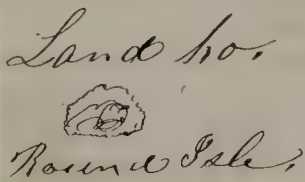 Land ho.
Round Isle.